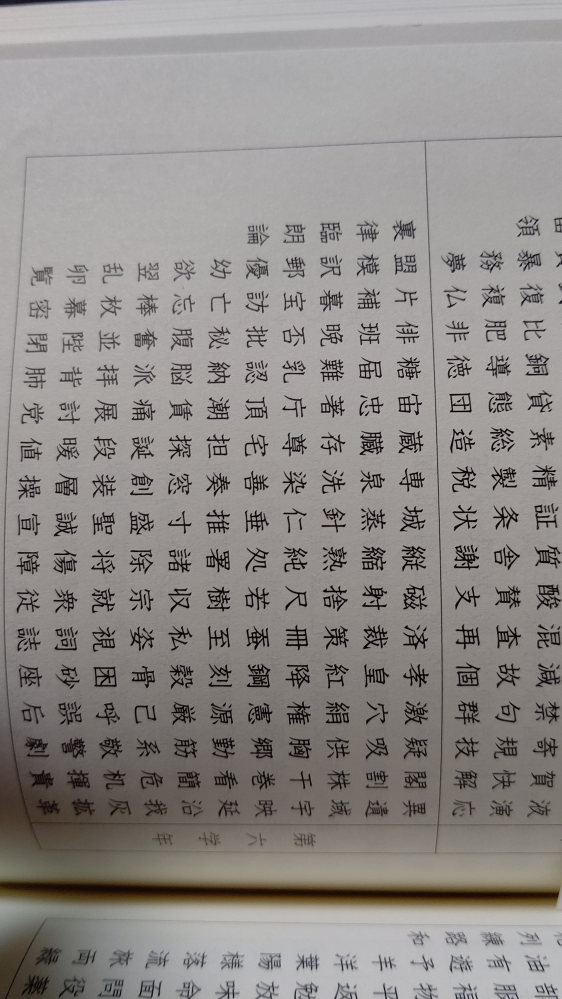 液演応
賀快解
寄規技
禁句群
減故個
混査再
酸賛支
質舎謝
証条状
精製税
素総造
貸態団
銅導徳
比肥非
復複仏
暴務夢
領
第六学年
異遺域宇映延沿我灰拡革
閣割株干巻看簡危机揮貴
疑吸供胸郷勤筋系敬警劇
激穴絹権憲源厳己呼誤后
孝皇紅降鋼刻穀骨困砂座
済裁策冊蚕至私姿視詞誌
磁射捨尺若樹収宗就衆従
縦縮熟純処署諸除将傷障
城蒸針仁垂推寸盛聖誠宣
専泉洗染善奏窓創装層操
蔵臓存尊宅担探誕段暖値
宙忠著庁頂潮賃痛展討党
糖届難乳認納脳派拝背肺
俳班晩否批秘腹奮並陛閉
片補暮宝訪亡忘棒枚幕密
盟模訳郵優幼欲翌乱卵覧
裏律臨朗論
部服福物平返勉放味命面問役薬
油有遊予羊洋葉陽様落流旅両緑
列練路和